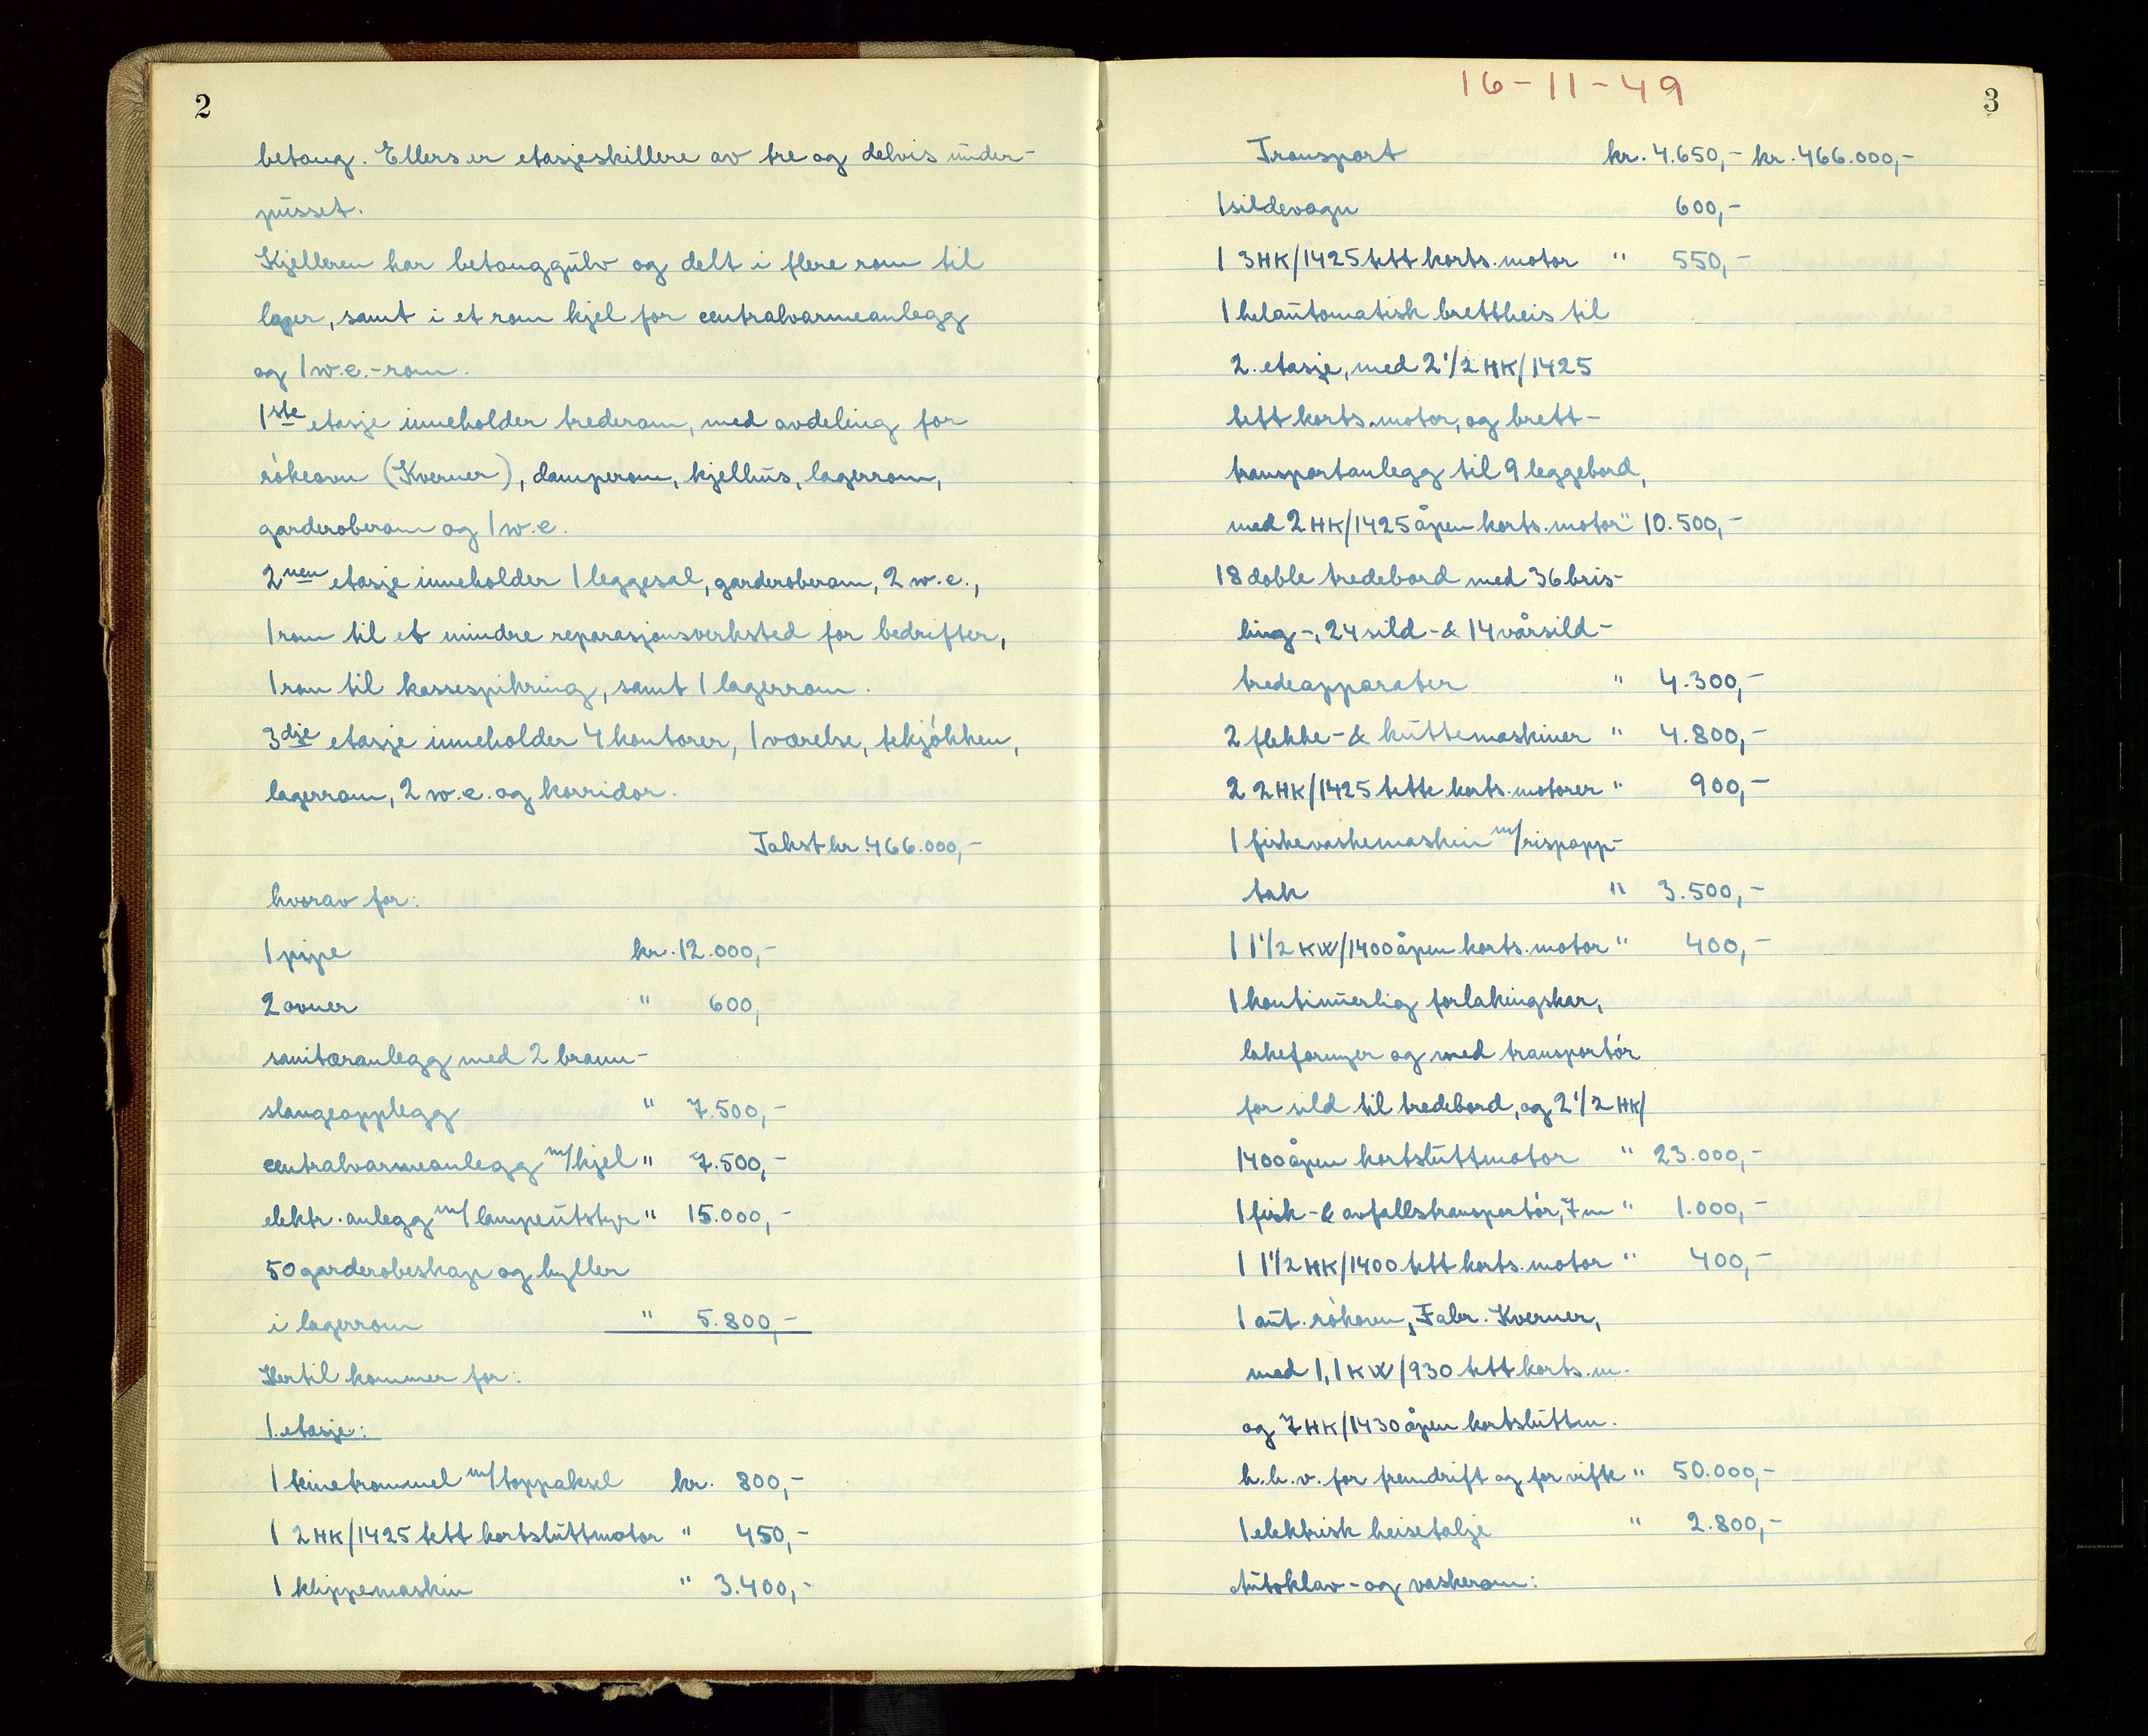 2
betong. Ellers er etasjeskillere av tre og delvis under-
pusset.
Kjelleren har betonggulv og delt i flere rom til
lager, samt i et rom kjel for centralvarmeanlegg
og 1 w.c.-rom.
1ste etasje inneholder trederom, med avdeling for
rökeovn (Kverner), damperom, kjelhus, lagerrom,
garderoberom og 1 w.c.
2nen etasje inneholder 1 leggesal, garderoberom, 2 w.c.,
1 rom til et mindre reparasjonsverksted for bedriften,
1 rom til kassespikring, samt 1 lagerrom.
3dje etasje inneholder 4 kontorer, 1 værelse, tekjökken,
lagerrom, 2 w.c. og korridor.
Takst kr. 466.000,-
hvorav for:
1 pipe kr. 12.000,-
2 ovner " 600,-
sanitæranlegg med 2 brann-
slangeopplegg " 7.500,-
centralvarmeanlegg m/kjel " 7.500,-
elektr. anlegg m/ lampeutstyr " 15.000,-
50 garderobeskap og hyller
i lagerrom " 5.800,-
Hertil kommer for:
1. etasje:
1 teinetrommel m/toppaksel kr. 800,-
1 2 HK/1425 tett kortsluttmotor " 450,-
1 klippemaskin " 3.400,-
16-11-49
3
Transport kr. 4.650,- kr. 466.000,-
1 sildevogn 600,-
1 3 HK/1425 tett korts. motor " 550,-
1 helautomatisk brettheis til
2. etasje, med 2 1/2 HK/1425
tett korts. motor, og brett-
transportanlegg til 9 leggebord,
med 2 HK/1425 åpen korts. motor " 10.500,-
18 doble tredebord med 36 bris-
ling-, 24 sild- & 14 vårsild-
tredeapparater " 4.300,-
2 flekke- & kuttemaskiner " 4.800,-
2 2 HK/1425 tette korts. motorer " 900,-
1 fiskevaskemaskin m/rispapp-
tak " 3.500,-
1 1 1/2 KW/1400 åpen korts. motor " 400,-
1 kontinuerlig forlakingskar,
lakeforunger og med transportör
for sild til tredebord, og 2 1/2 HK/
1400 åpen kortsluttmotor " 23.000,-
1 fisk- & avfallstransportör, 7 m " 1.000,-
1 1 1/2 HK/1400 tett korts. motor " 400,-
1 aut. rökovn, Fabr. Kverner,
med 1,1 KW/930 tett korts. m.
og 7 HK/1430 åpen kortsluttm.
h.h.v. for fremdrift og for vifte " 50.000,-
1 elektrisk heisetalje " 2.800,-
Autoklav- og vaskerom: